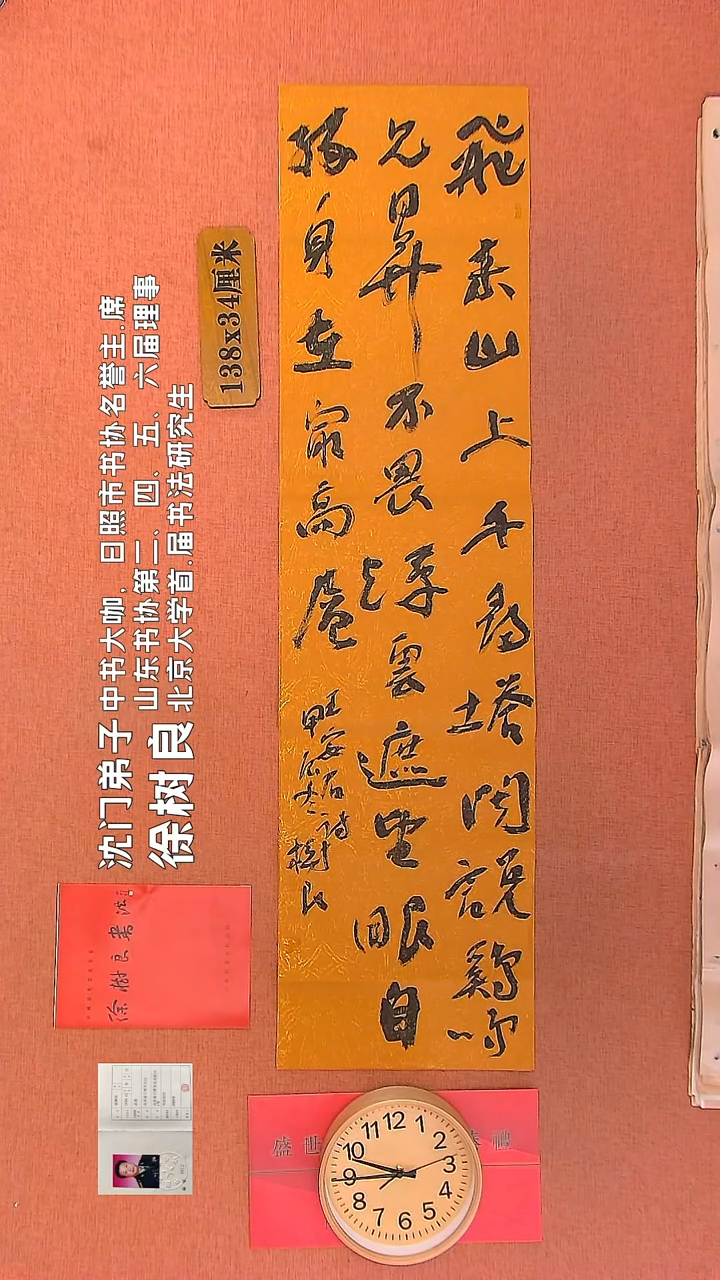 飛来山上千尋塔聞說鷄鳴
見日昇不畏浮雲遮望眼自
緣身在最高層
王安石詩
甲辰
樹良
138x34厘米
沈门弟子 中书大咖，日照市书协名誉主.席
山东书协第二、四、五、六届理事
徐树良 北京大学首.届书法研究生
徐樹良書法
盛世
禮
12
1
2
3
4
5
6
7
8
9
10
11